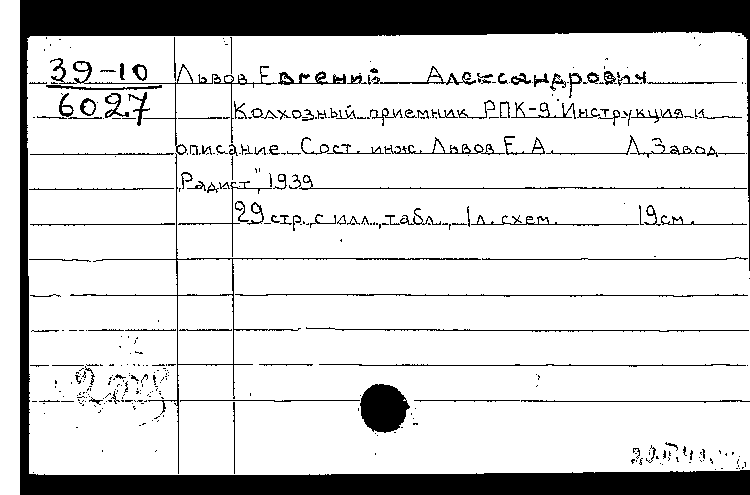 39-10
6027
Львов, Евгений Александрович
Колхозный приемник РПК-9. Инструкция и
описание. Сост. инж. Львов Е. А. Л., Завод
„Радист", 1939
29 стр. с илл., табл., 1 л. схем. 19 см.